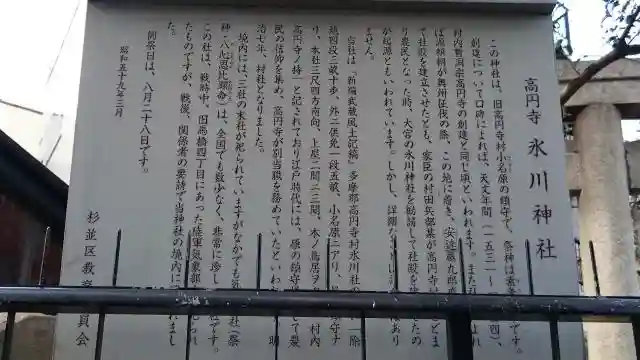 高円寺 氷川神社
この神社は、旧高円寺村小名原の鎮守で、祭神は素
です。
創建について口碑によれば、天文年間(一五三二〜
四)、
村内曹洞宗高円寺の創建と同じ頃といわれます。また
ば源頼朝が奥州征伐の際、この地に着き、安達藤九郎
て社殿を建立させたとも、家臣の村田兵部某が高円寺村
り農民となった時、大宮の氷川神社を勧請して社殿を
たの
が起源ともいわれています。しかし、詳細な
あり
ません。
当社は『新編武蔵風土記稿』多摩郡高円寺村氷川社の
一除
地四段三歩十歩、外ニ供免一段五畝、小名原ニアリ、
守ナ
リ、本社三尺四方南向、上屋二間ニ三間、木ノ鳥居ヲ
村内
高円寺ノ持」と記されており江戸時代には、原の鎮守
して農
民の信仰を集め、高円寺が別当職を務めていたといわ
明
治七年、村社となりました。
境内には、三社の末社が祀られていますがなかでも気
社(祭
神・八心思兼命)は、全国でも数少なく、非常に珍し
です。
この社は、戦時中、旧馬橋四丁目にあった陸軍気象部
られ
たものですが、戦後、関係者の要請で当神社の境内に
まし
た。
例祭日は、八月二十八日です。
昭和五十九年三月
杉並区教育委員会